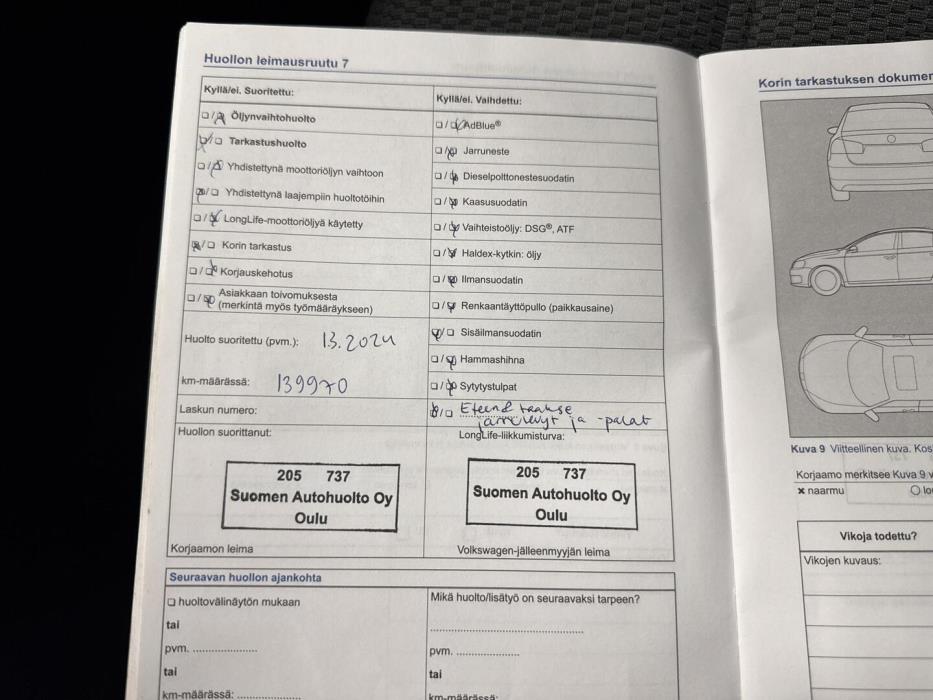 Huollon leimausruutu 7
Kyllä/ei. Suoritettu:
☐/☒ Öljynvaihtohuolto
☒/☐ Tarkastushuolto
☐/☒ Yhdistettynä moottoriöljyn vaihtoon
☒/☐ Yhdistettynä laajempiin huoltotöihin
☐/☒ LongLife-moottoriöljyä käytetty
☒/☐ Korin tarkastus
☐/☒ Korjauskehotus
☐/☒ Asiakkaan toivomuksesta
(merkintä myös työmääräykseen)
Huolto suoritettu (pvm.): 13.2024
km-määrässä: 139970
Laskun numero:
Kyllä/ei. Vaihdettu:
☐/☒ AdBlue®
☐/☒ Jarruneste
☐/☒ Dieselpolttonestesuodatin
☐/☒ Kaasusuodatin
☐/☒ Vaihteistoöljy: DSG®, ATF
☐/☒ Haldex-kytkin: öljy
☐/☒ Ilmansuodatin
☐/☒ Renkaantäyttöpullo (paikkausaine)
☒/☐ Sisäilmansuodatin
☐/☒ Hammashihna
☐/☒ Sytytystulpat
☒/☐ Eteen & taakse
jarrulevyt ja -palat
Huollon suorittanut:
205 737
Suomen Autohuolto Oy
Oulu
Korjaamon leima
LongLife-liikkumisturva:
205 737
Suomen Autohuolto Oy
Oulu
Volkswagen-jälleenmyyjän leima
Seuraavan huollon ajankohta
☐ huoltovälinäytön mukaan
tai
pvm. ....................
tai
km-määrässä: ....................
Mikä huolto/lisätyö on seuraavaksi tarpeen?
................................................
pvm. ....................
tai
km-määrässä: ....................
Korin tarkastuksen dokumen
Kuva 9 Viitteellinen kuva. Kos
Korjaamo merkitsee Kuva 9 v
× naarmu
Vikoja todettu?
Vikojen kuvaus: